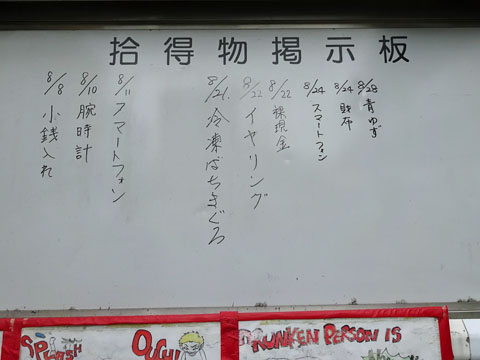 拾得物掲示板
8/28 青ゆず
8/24 財布
8/24 スマートフォン
8/22 裸現金
8/22 イヤリング
8/21 冷凍ばちまぐろ
8/11 スマートフォン
8/10 腕時計
8/8 小銭入れ
SPLASH
OUCH!
DRUNKEN PERSON IS